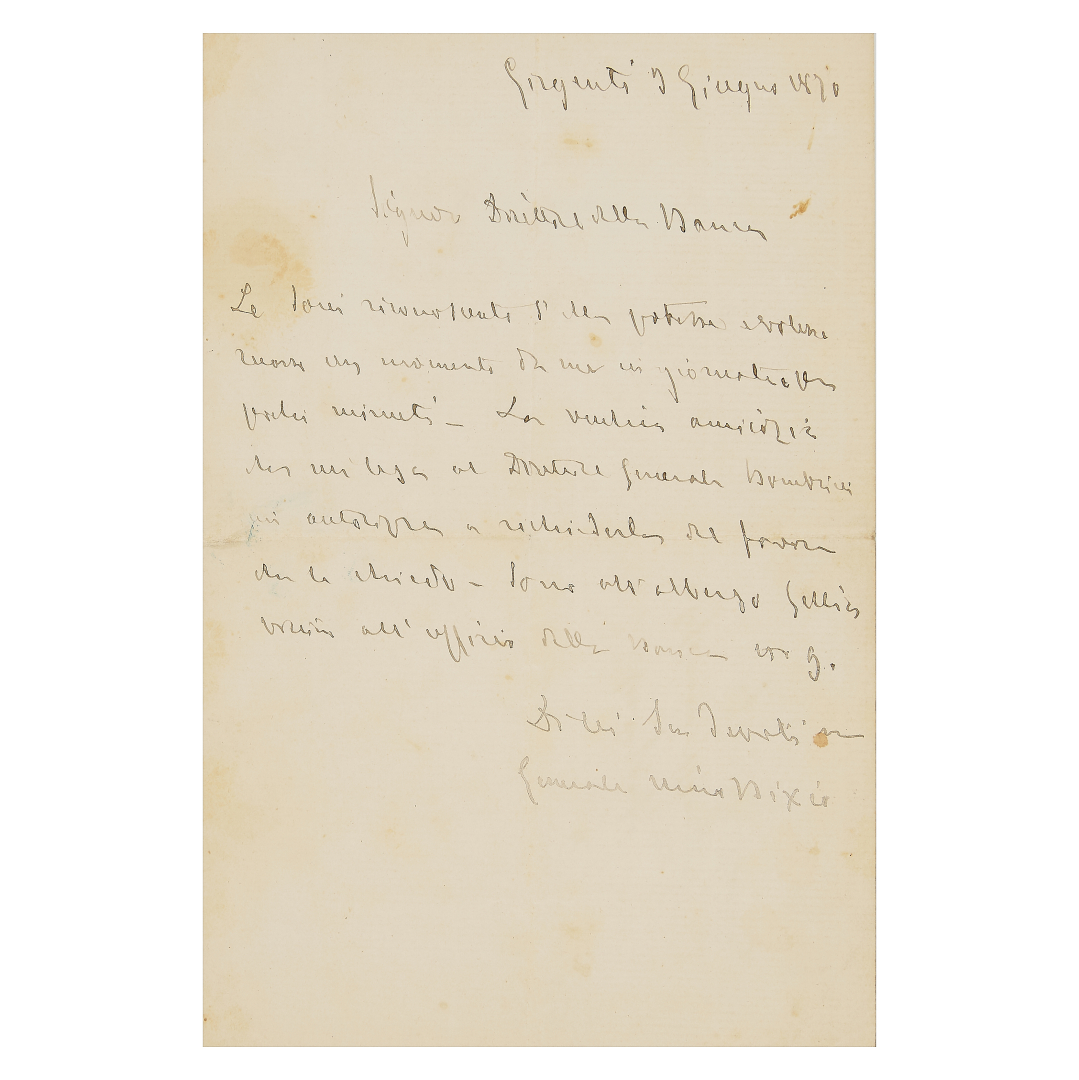 Girgenti 7 Giugno 1870
Signor Direttore della Banca
Le sarei riconoscente s'ella potesse e volesse
un momento da me in giornata
pochi minuti – La vecchia amicizia
che mi lega al Direttore Generale Bombrini
mi autorizza a richiederla del favore
che le chiedo – Sono all'albergo Gellia
vicino all'officio della Banca n° 9.
Di Lei Suo Devoti mo
Generale Nino Bixio